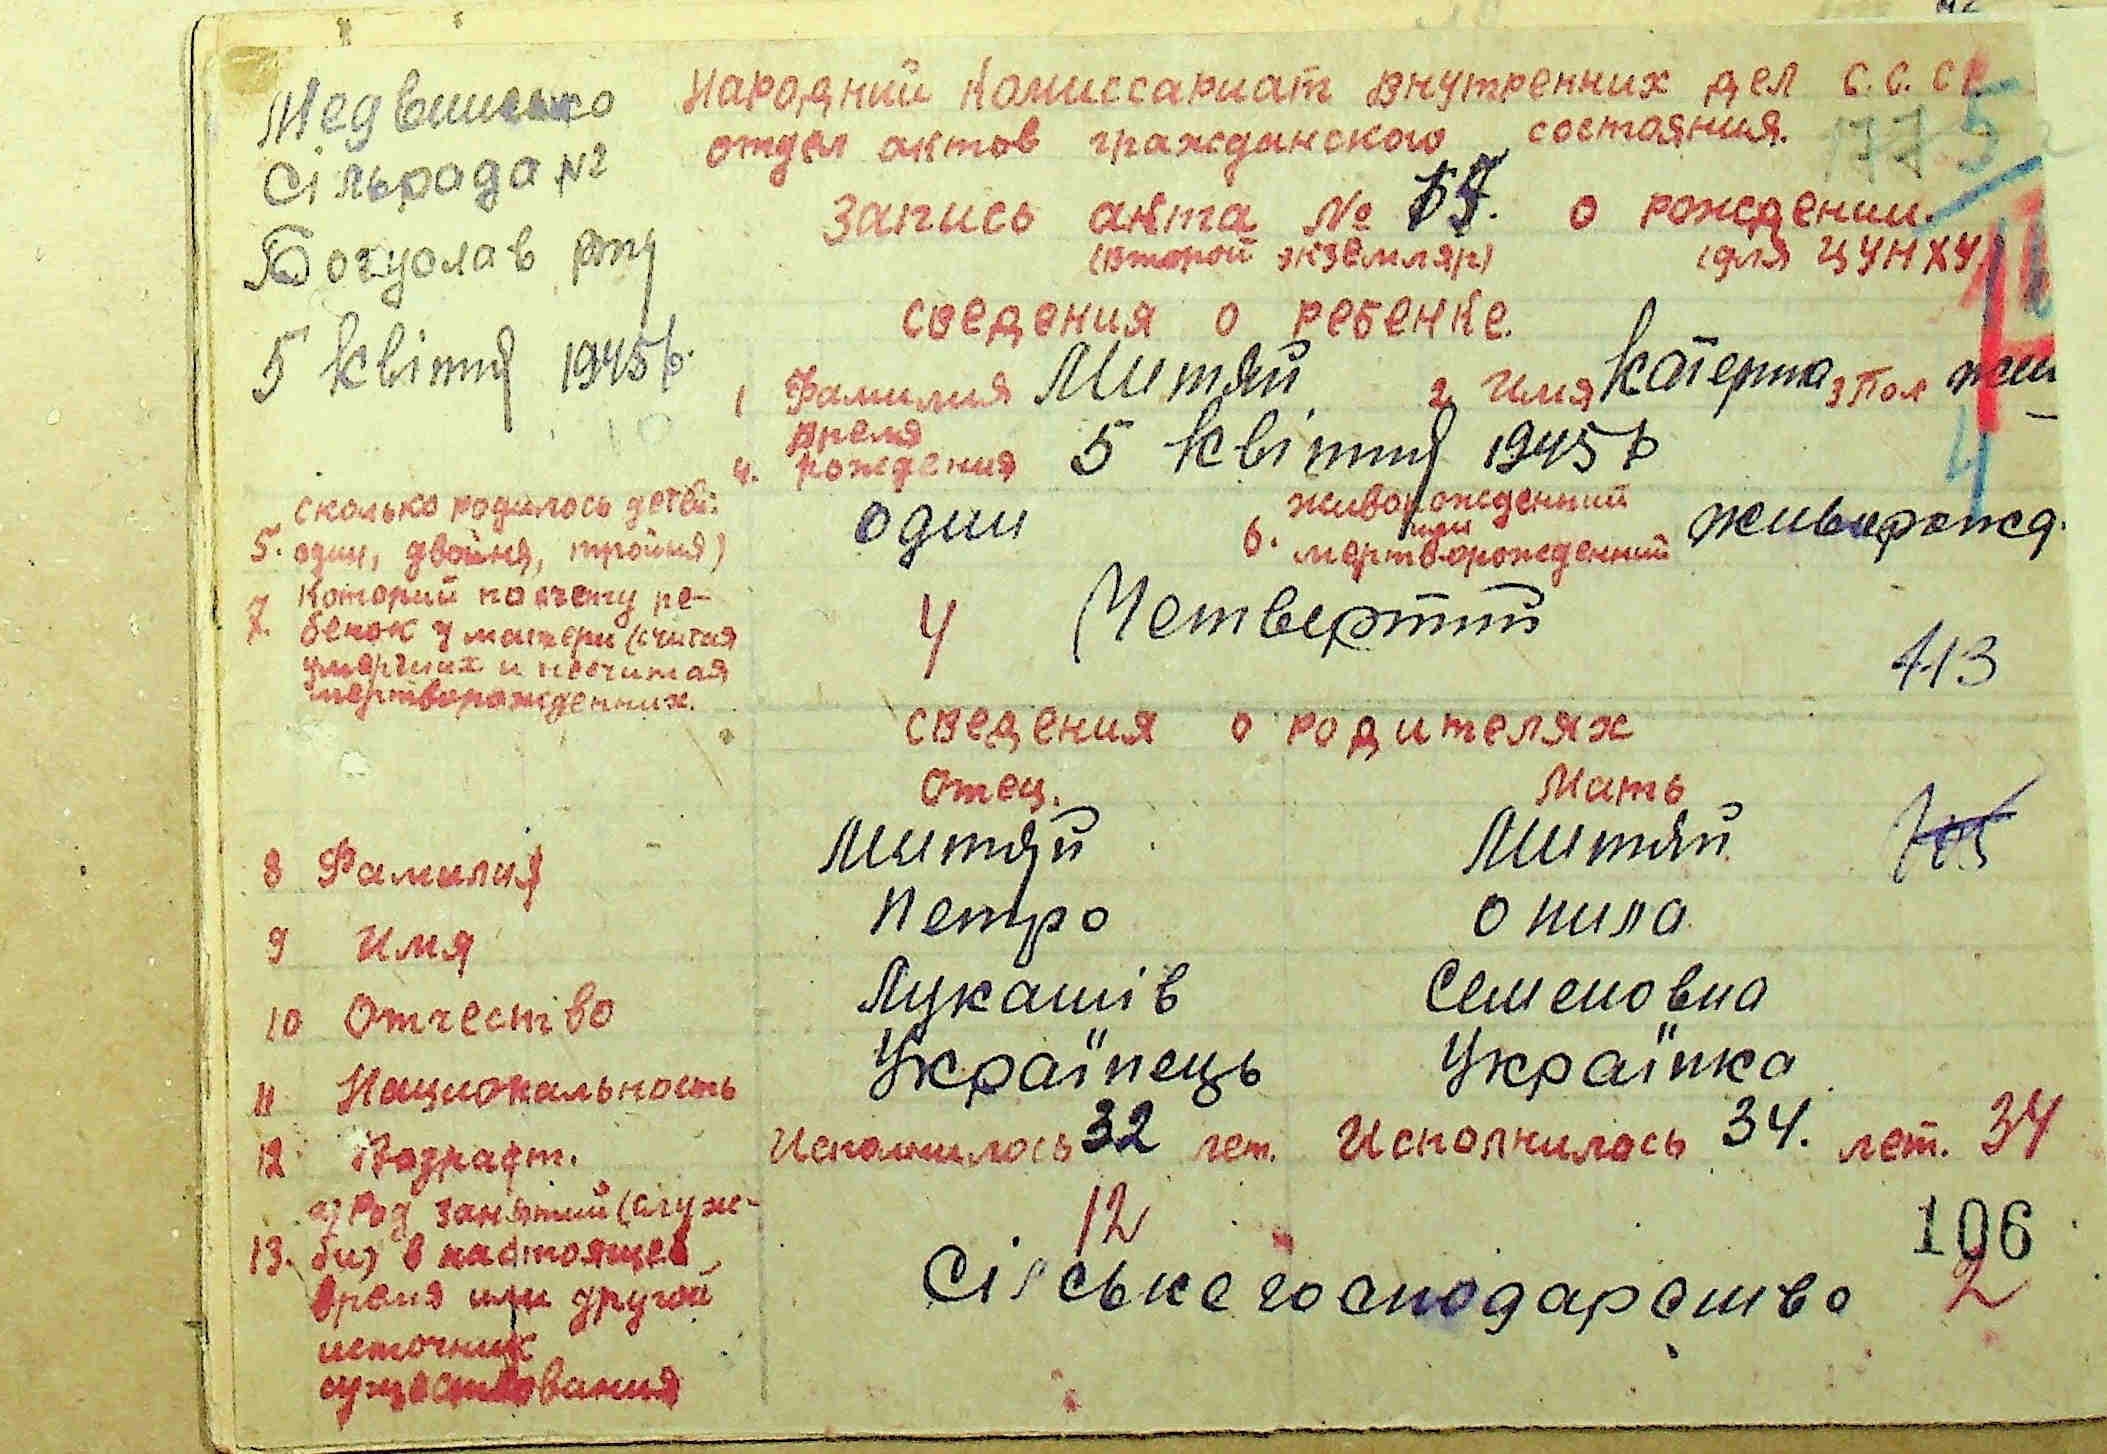 Медвинсько
Сільрада №2
Богуслав рну
5 квітня 1945 р.
Народний Комиссариат внутренних дел С.С.С.Р
отдел актов гражданского состояния.
Запись акта № о рождении.
(второй экземпляр) (для ЦУНХУ)
сведения о ребенке.
1 Фамилия Митяй 2 Имя Катерина 3 Пол жин
4. время рождения 5 квітня 1945 р
5. сколько родилось детей:
один, двойня, тройня) один
6. живорожденний
или
мертворожденний живорожд.
7. Которий по счету ре-
бенок у матери (считая
умерших и несчитая
мертворожденних. 4 Четвертий
413
сведения о родителях
Отец. Мать
8 Фамилия Митяй Митяй
9 Имя Петро Онила
10 Отчество Лукашів Семеновна
11 Национальность Українець Українка
12 Возраст. Исполнилось 32 лет. Исполнилось 34. лет. 34
12
106
13. а) Род занятий (служ-
би) в настоящее
время или другой
источник
существования
Сільське господарство 2